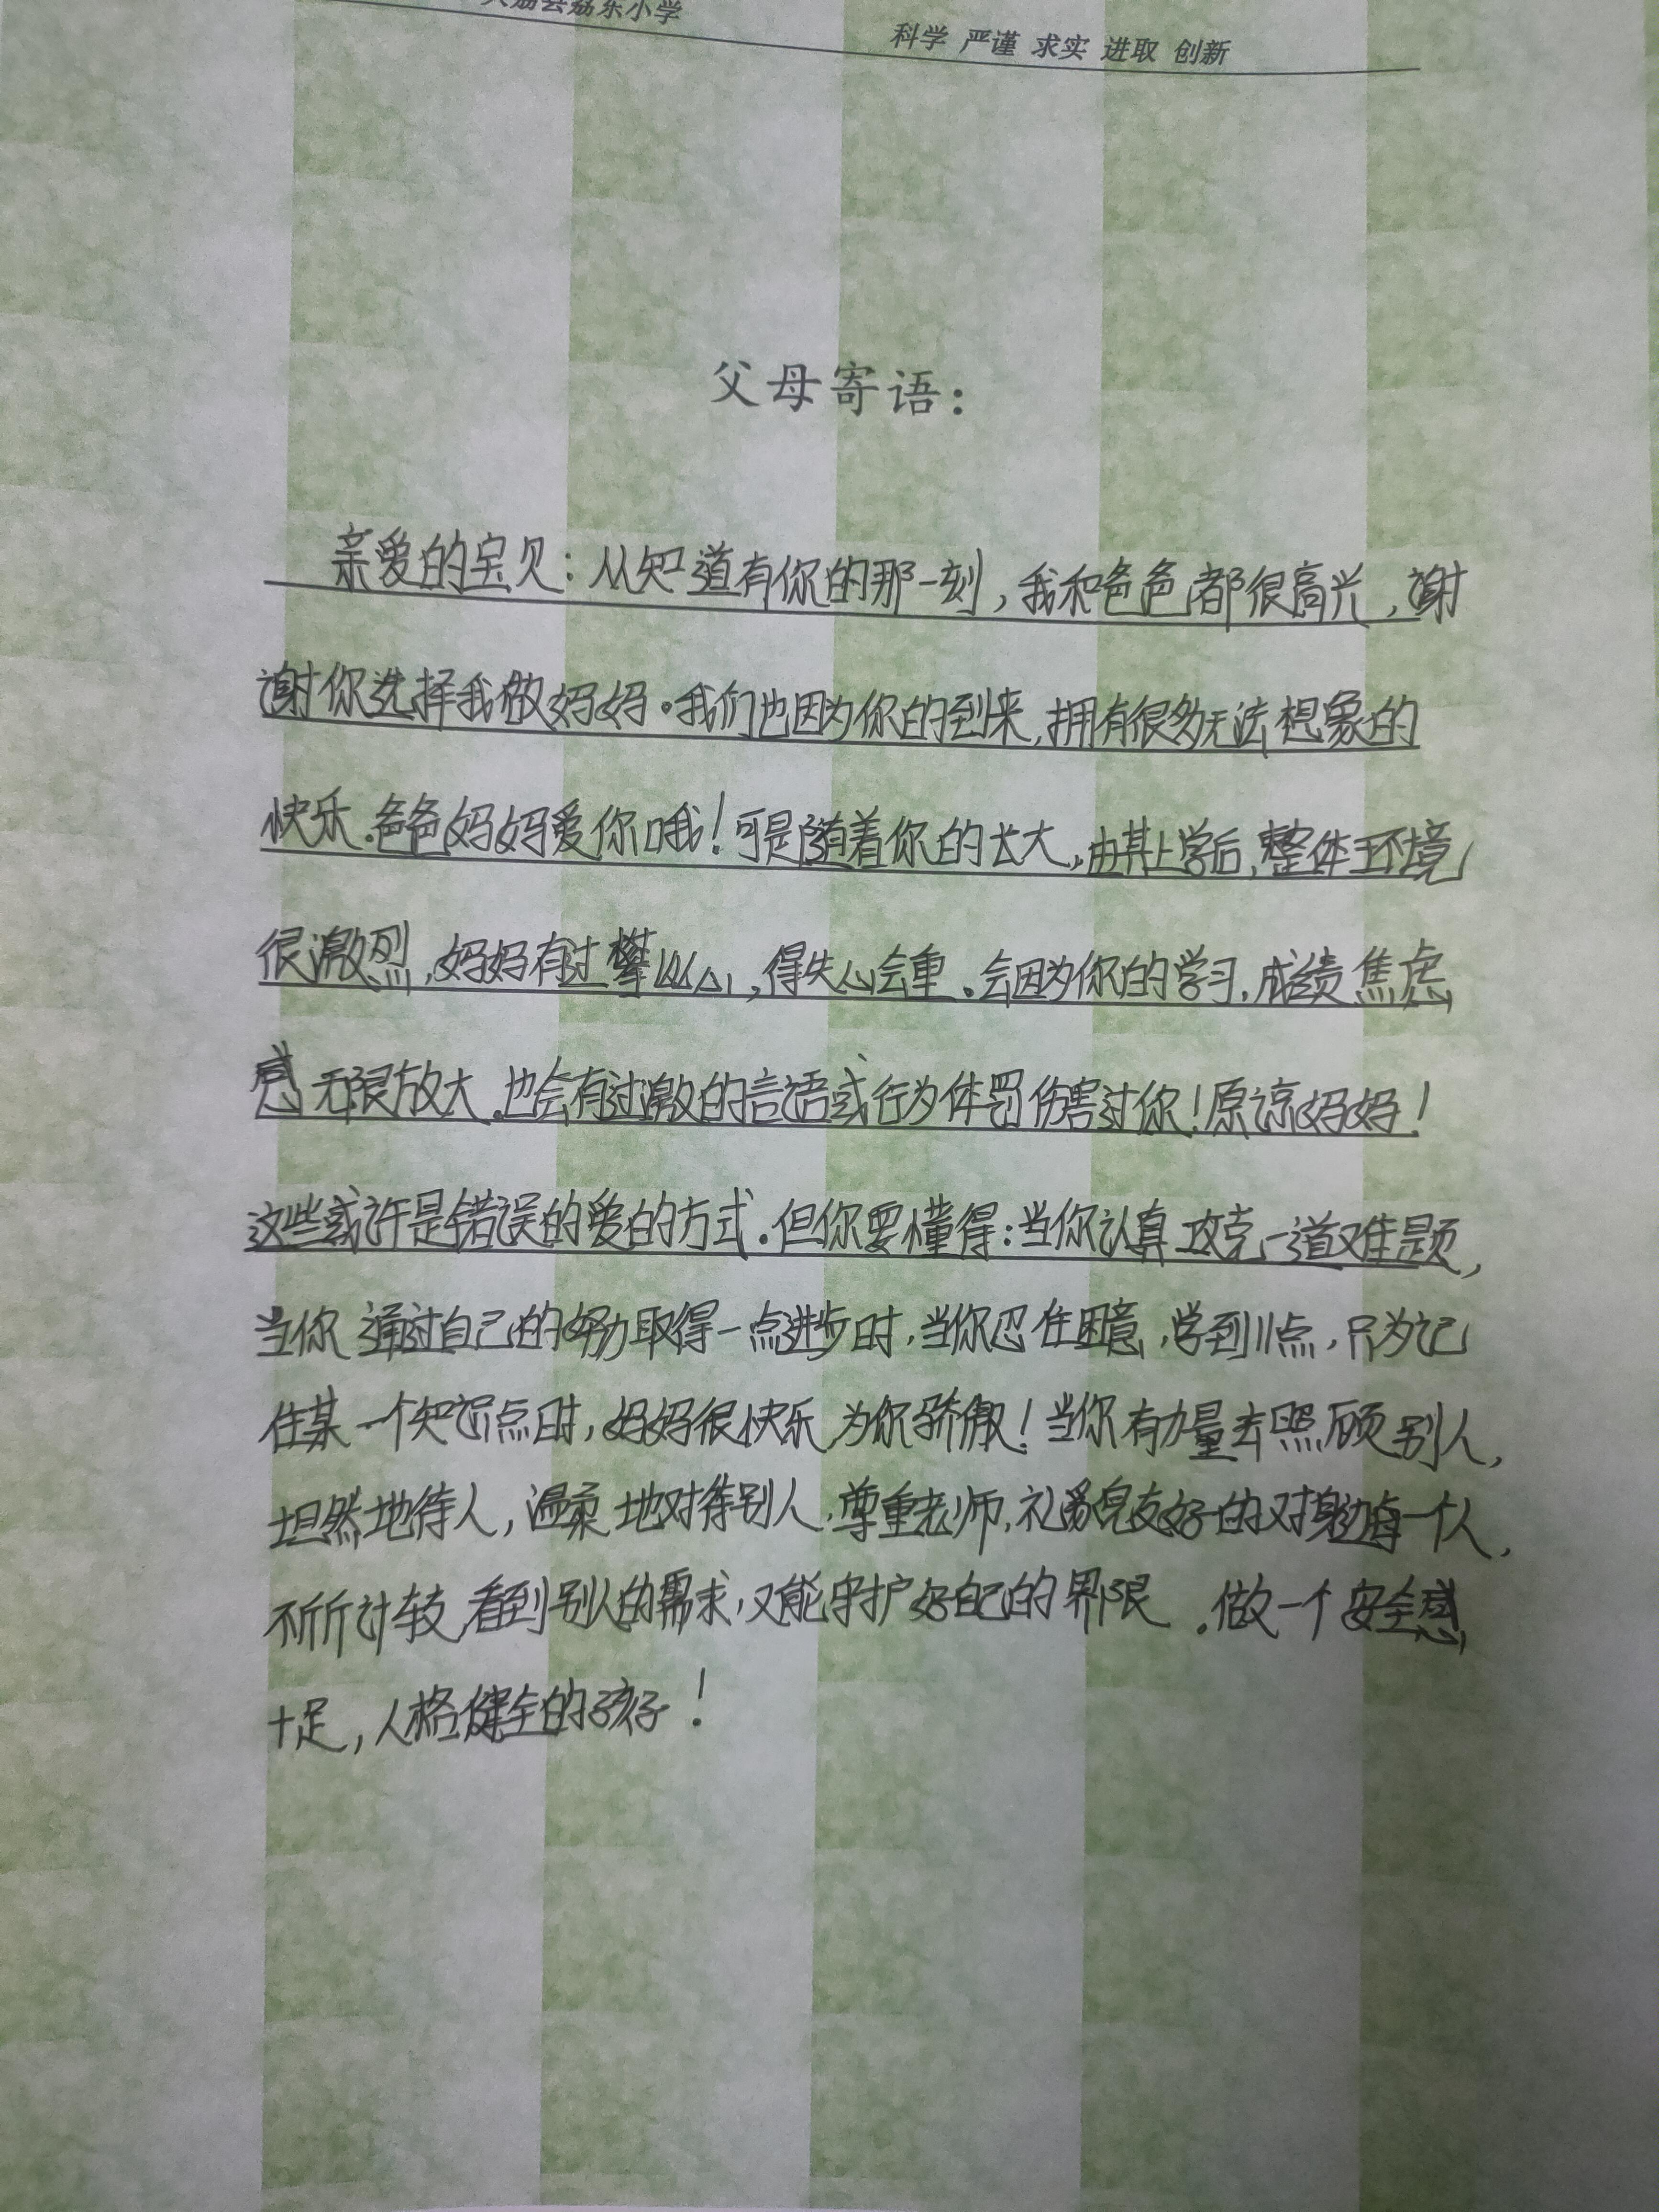 大荔县荔东小学
科学 严谨 求实 进取 创新
父母寄语：
亲爱的宝贝：从知道有你的那一刻，我和爸爸都很高兴，谢
谢你选择我做妈妈。我们也因为你的到来，拥有很多无法想象的
快乐。爸爸妈妈爱你哦！可是随着你的长大，由其上学后，整体环境
很激烈，妈妈有过攀比心，得失心会重。会因为你的学习，成绩焦虑
感无限放大，也会有过激的言语或行为体罚伤害过你！原谅妈妈！
这些或许是错误的爱的方式。但你要懂得：当你认真攻克一道难题，
当你通过自己的努力取得一点进步时，当你忍住困意，学到11点，只为记
住某一个知识点时，妈妈很快乐，为你骄傲！当你有力量去照顾别人，
坦然地待人，温柔地对待别人，尊重老师，礼貌友好的对身边每一个人，
不斤斤计较，看到别人的需求，又能守护好自己的界限。做一个安全感
十足，人格健全的孩子！